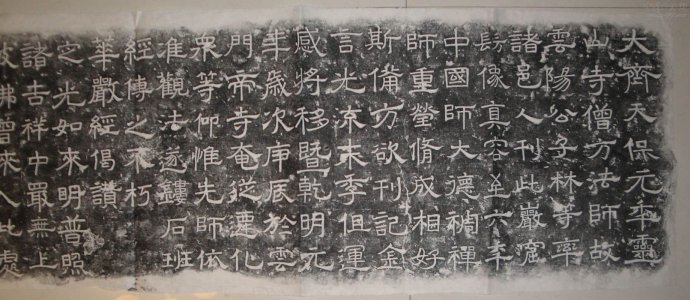 大齊天保元年靈
山寺僧方法師故
雲陽公子林等率
諸邑人刊此巖窟
髣像真容至六年
中國師大德稠禪
師重瑩脩成相好
斯備方欲刊記金
言光流末季但運
感將移暨乾明元
年歲次庚辰於雲
門帝寺奄從遷化
衆等仰惟先師依
准觀法遂鏤石班
經傳之不朽
華嚴經偈讚
之光如來明普照
諸吉祥中最無上
彼佛曾來入此處